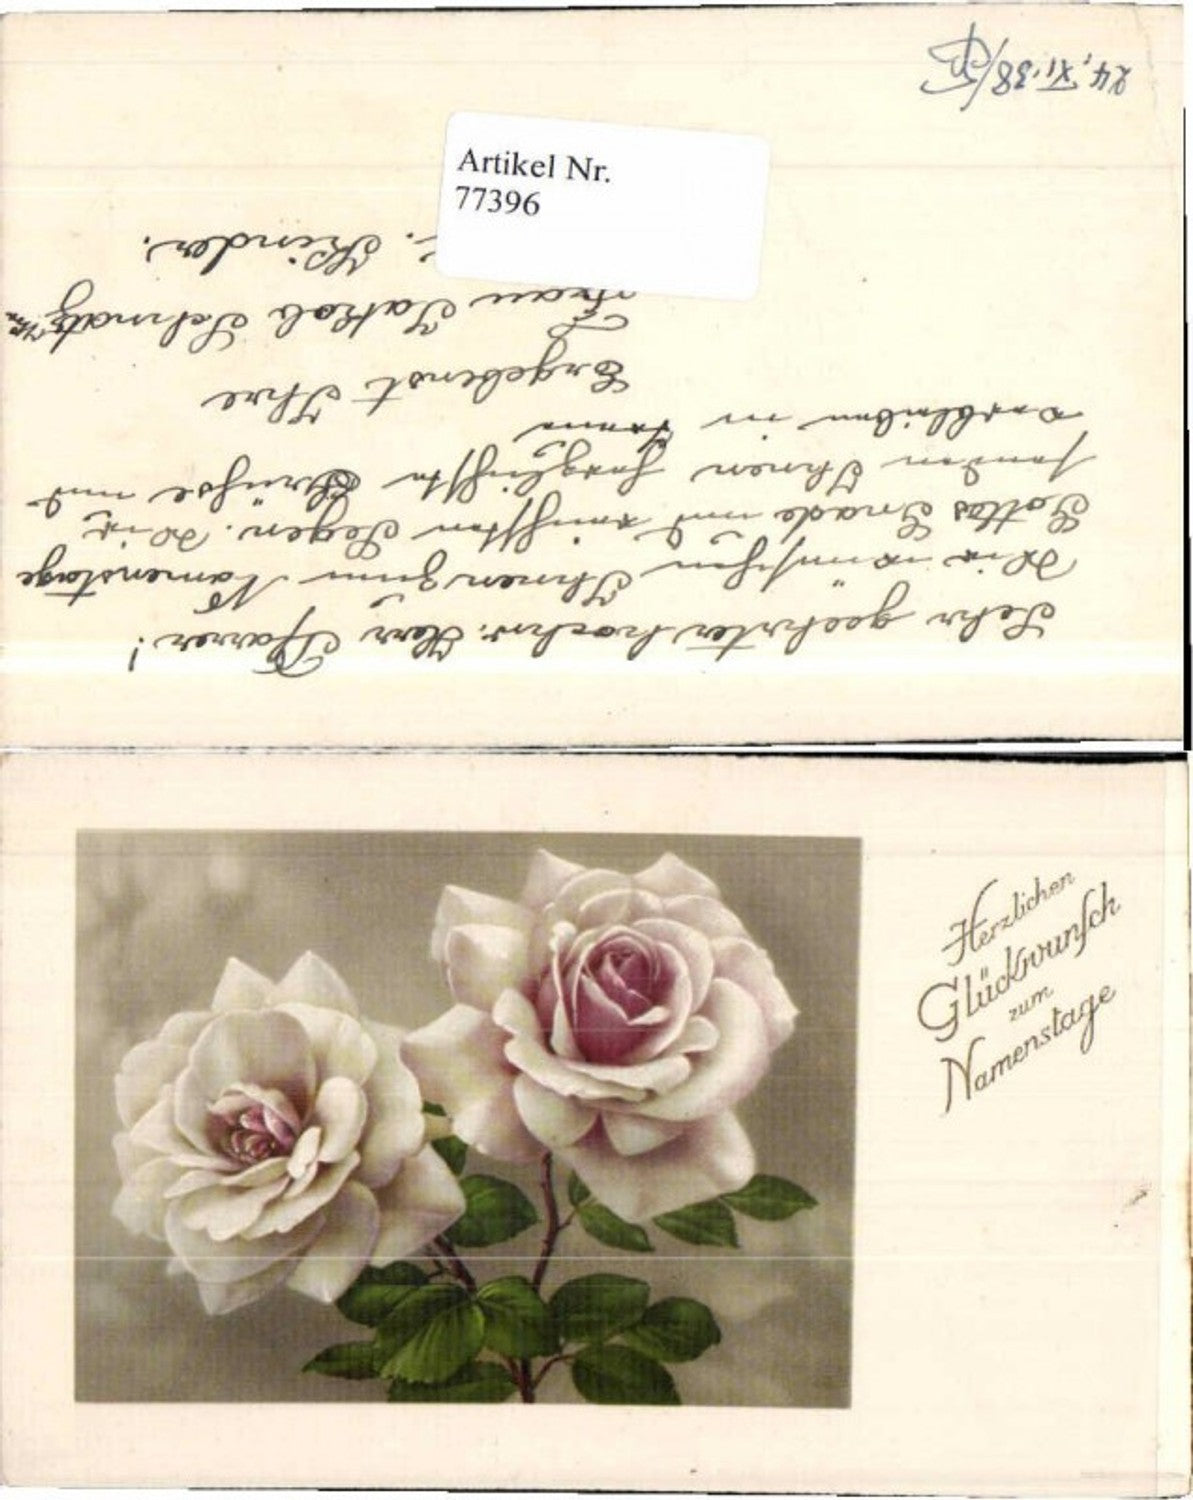 Sehr geehrter hochw. Herr Pfarrer!
Wir wünschen Ihnen zum Namenstage
Gottes Gnade und reichsten Segen. Wir
senden Ihnen herzlichste Grüße und
verbleiben in
Ergebenst Ihre
Frau Jakob
u. Kinder.
24. XI. 38
Artikel Nr.
77396
Herzlichen
Glückwunsch
zum
Namenstage